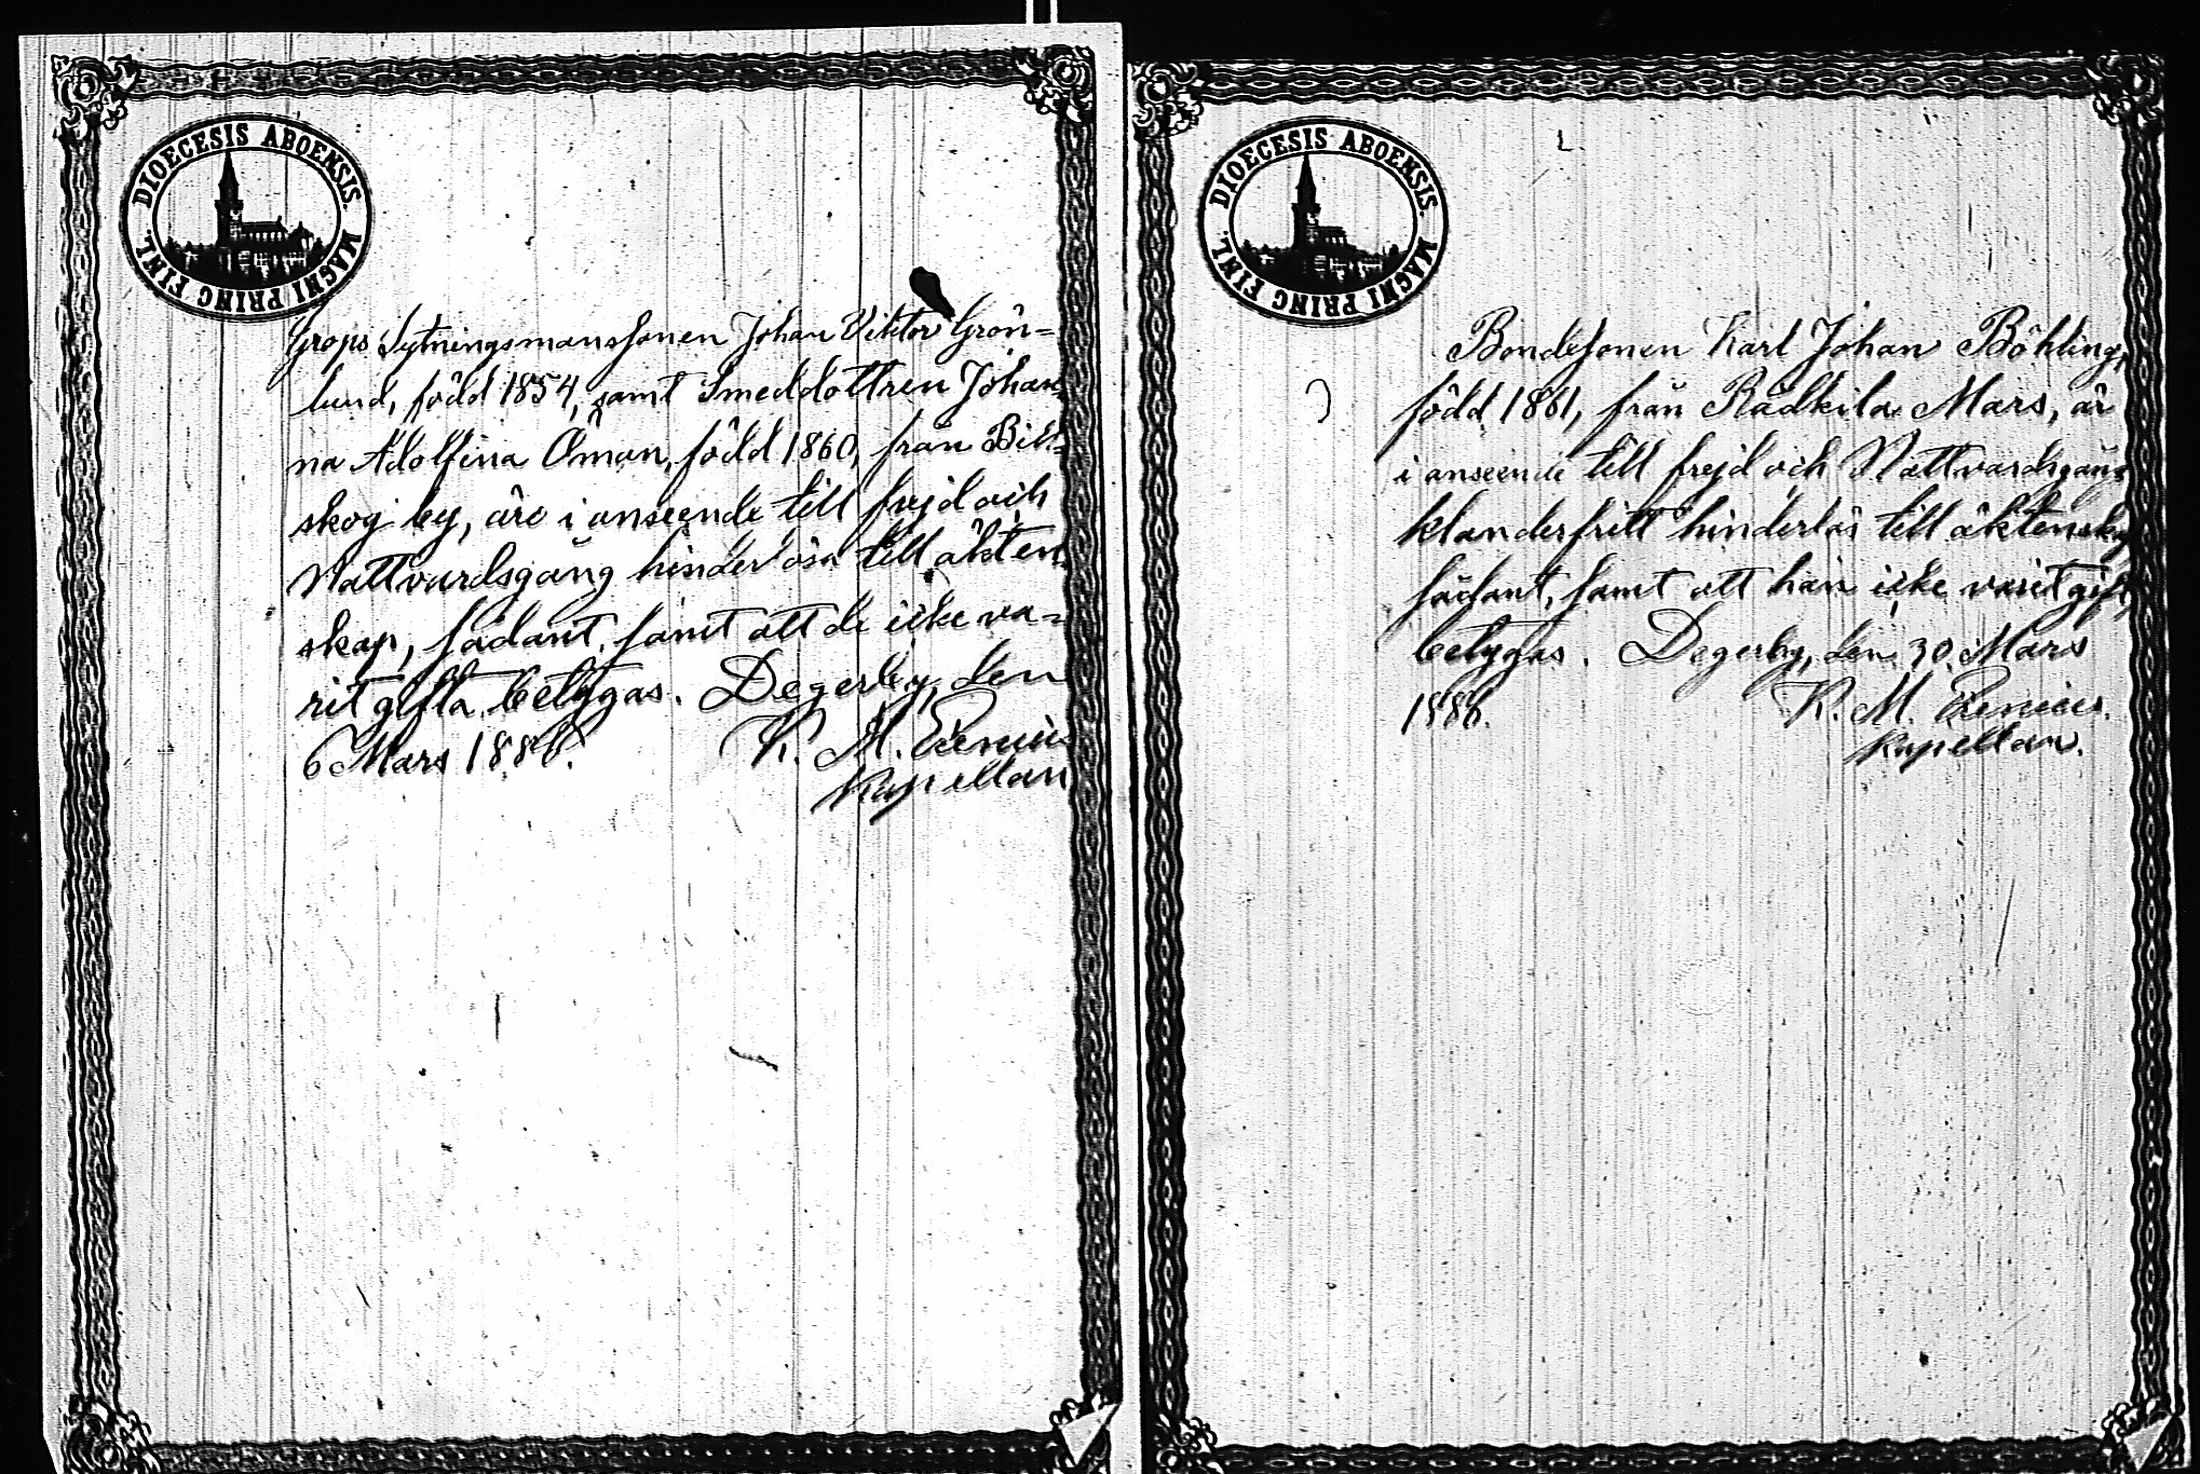 DIOECESIS ABOENSIS. MAGNI PRINC FINL.
Grops Sytningsmanssonen Johan Viktor Grön=
lund, född 1854, samt Smeddottren Johan=
na Adolfina Öman, född 1860, från Bill=
skog by, äro i anseende till frejd och
Nattvardsgång hinderlösa till äkten=
skap, sådant, samt att de icke va=
rit gifta, betygas. Degerby, den
6 Mars 1886. K. M.
Kapellan
DIOECESIS ABOENSIS. MAGNI PRINC FINL.
Bondesonen Karl Johan Böhling,
född 1861, från Rådkila Mars, är
i anseende till frejd och Nattvardsgån=
klanderfritt hinderlös till äktenskap
sådant, samt att han icke varit gift,
betygas. Degerby, den 30 Mars
1886. K. M.
Kapellan.